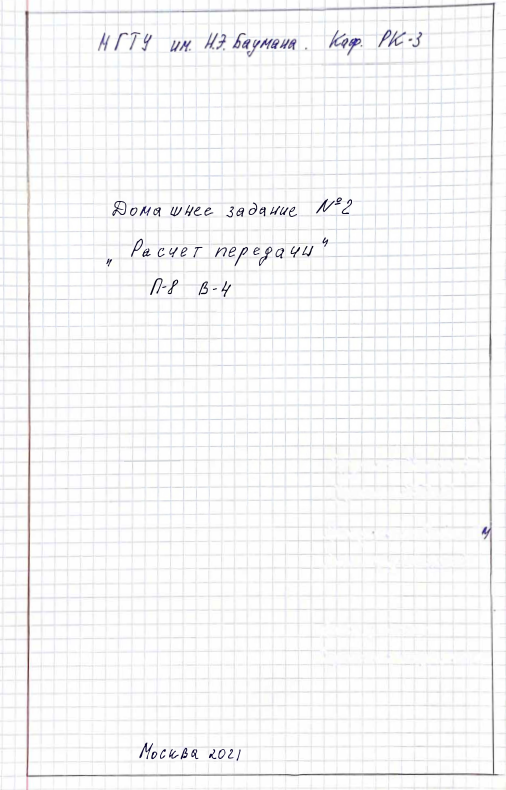 МГТУ им. Н.Э. Баумана. Каф. РК-3
Домашнее задание №2
„Расчет передачи"
П-8 В-4
Москва 2021